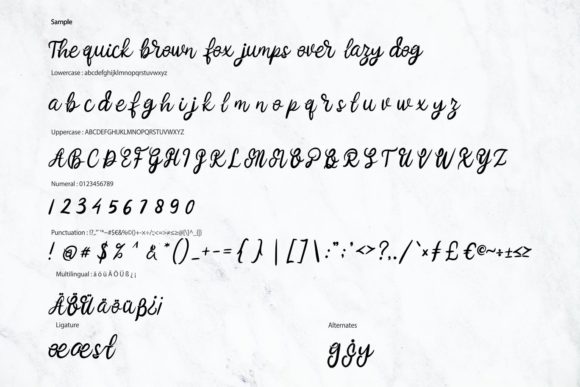 Sample
The quick brown fox jumps over lazy dog
Lowercase : abcdefghijklmnopqrstuvwxyz
a b c d e f g h i j k l m n o p q r s t u v w x y z
Uppercase : ABCDEFGHIJKLMNOPQRSTUVWXYZ
A B C D E F G H I J K L M N O P Q R S T U V W X Y Z
Numeral : 0123456789
1 2 3 4 5 6 7 8 9 0
Punctuation :
! @ # $ % ^ & * ( ) _ + - = { } | [ ] \ : " ; ' < > ? , . / ` × ₤ £ € © ~ ÷ ± ≤ ≥
Multilingual : ä ö ü Ä Ö Ü ß ¿ ¡
Ä Ö Ü ä ö ü ß ¿ ¡
Ligature
Alternates
œ æ st
g g y